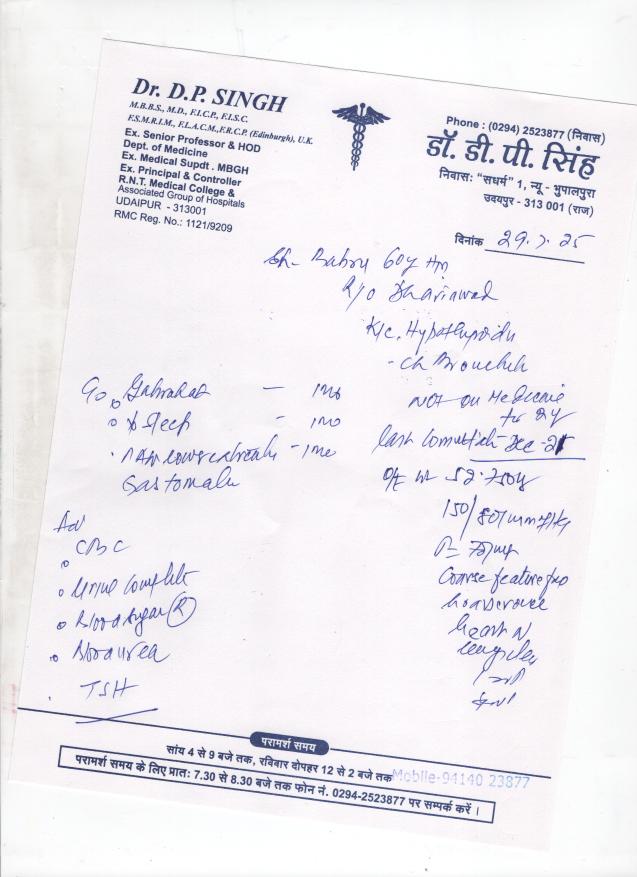 Dr. D.P. SINGH
M.B.B.S., M.D., F.I.C.P., F.I.S.C.
F.S.M.R.I.M., F.L.A.C.M.,F.R.C.P. (Edinburgh), U.K.
Ex. Senior Professor & HOD
Dept. of Medicine
Ex. Medical Supdt . MBGH
Ex. Principal & Controller
R.N.T. Medical College &
Associated Group of Hospitals
UDAIPUR - 313001
RMC Reg. No.: 1121/9209
Phone : (0294) 2523877 (निवास)
डॉ. डी. पी. सिंह
निवासः "सधर्म" 1, न्यू - भुपालपुरा
उदयपुर - 313 001 (राज)
दिनांक 29.7.25
60y
R/o Dhariawad
K/c. Hypothyroidu
- Ch Bronchih
Gabrahat — 1mo
Sleep - 1mo
- 1mo
Not on Medicine
for 2y
last Consultn Dec-21
O/E wt 52.750g
150/80mmHg
Coarse feature
hoarse voice
Heart N
Adv
CBC
Urine Complete
Blood sugar (R)
Blood urea
TSH
परामर्श समय
सांय 4 से 9 बजे तक, रविवार दोपहर 12 से 2 बजे तक Mobile-94140 23877
परामर्श समय के लिए प्रातः 7.30 से 8.30 बजे तक फोन नं. 0294-2523877 पर सम्पर्क करें ।